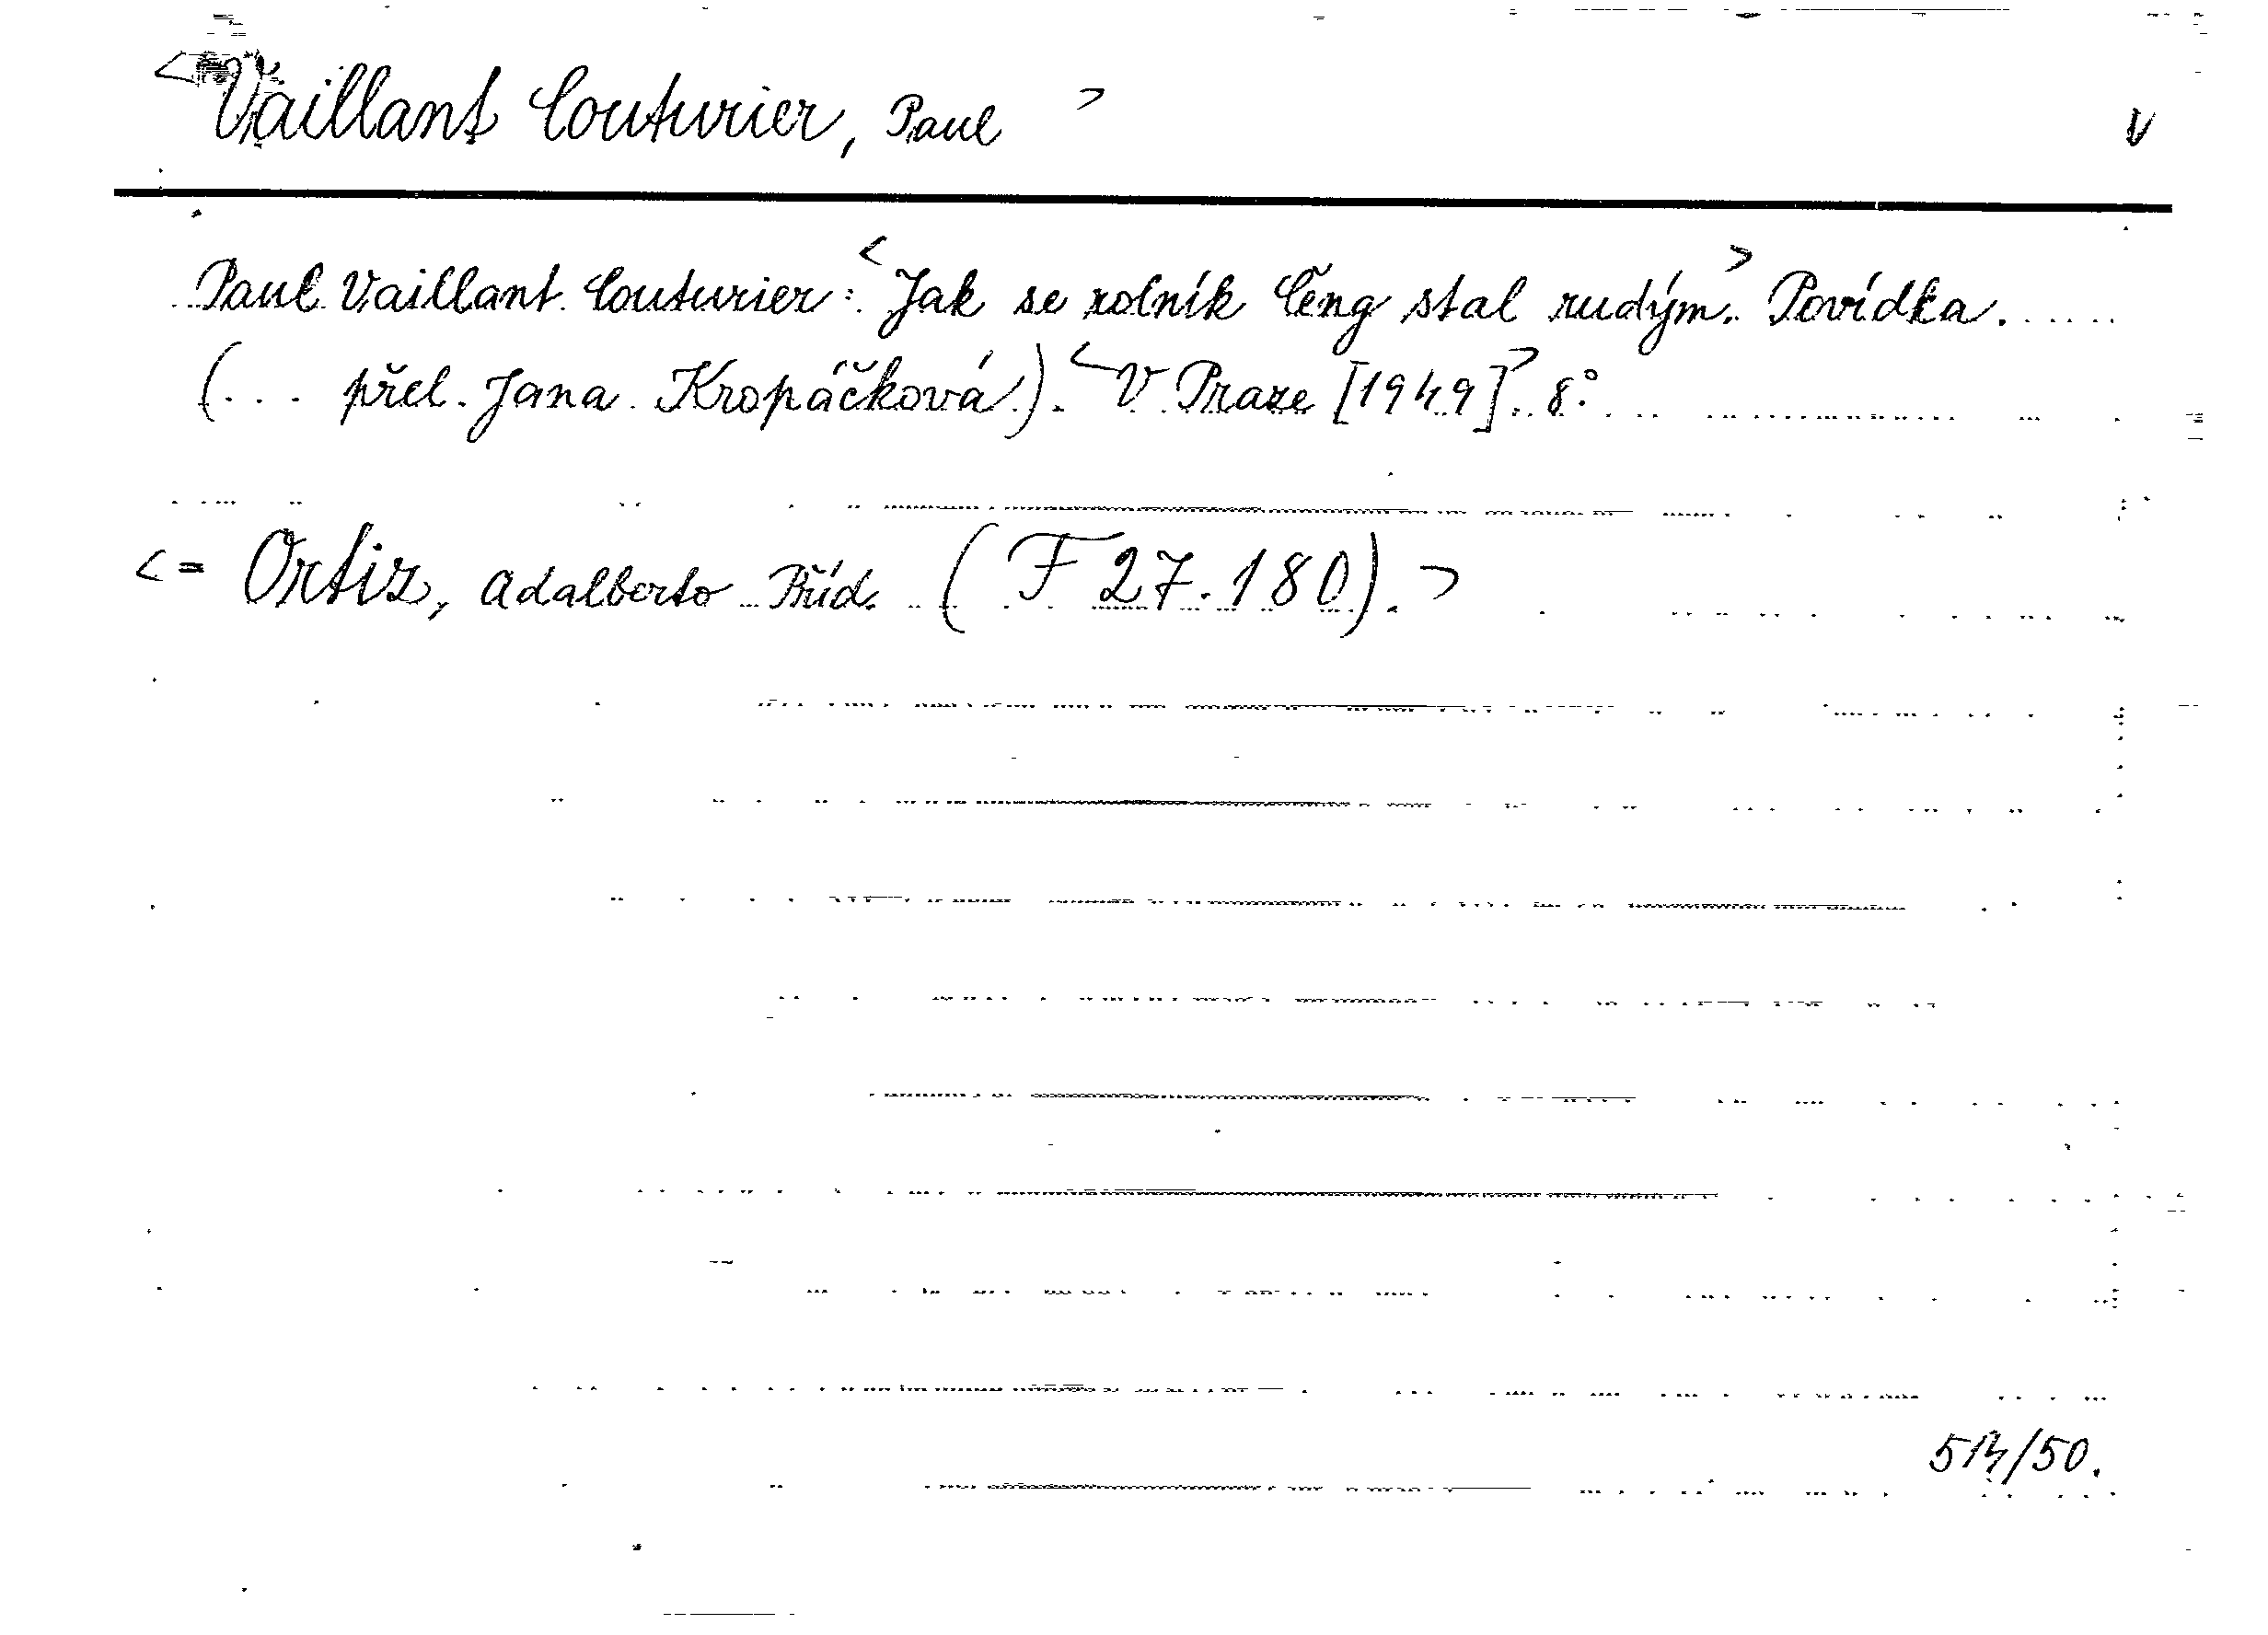 <Vaillant Couturier, Paul> V
Paul Vaillant Couturier: <Jak se rolník Čeng stal rudým.> Povídka.
(... přel. Jana Kropáčková). <V Praze [1949].> 8°.
<= Ortiz, Adalberto Příd. (F 27.180).>